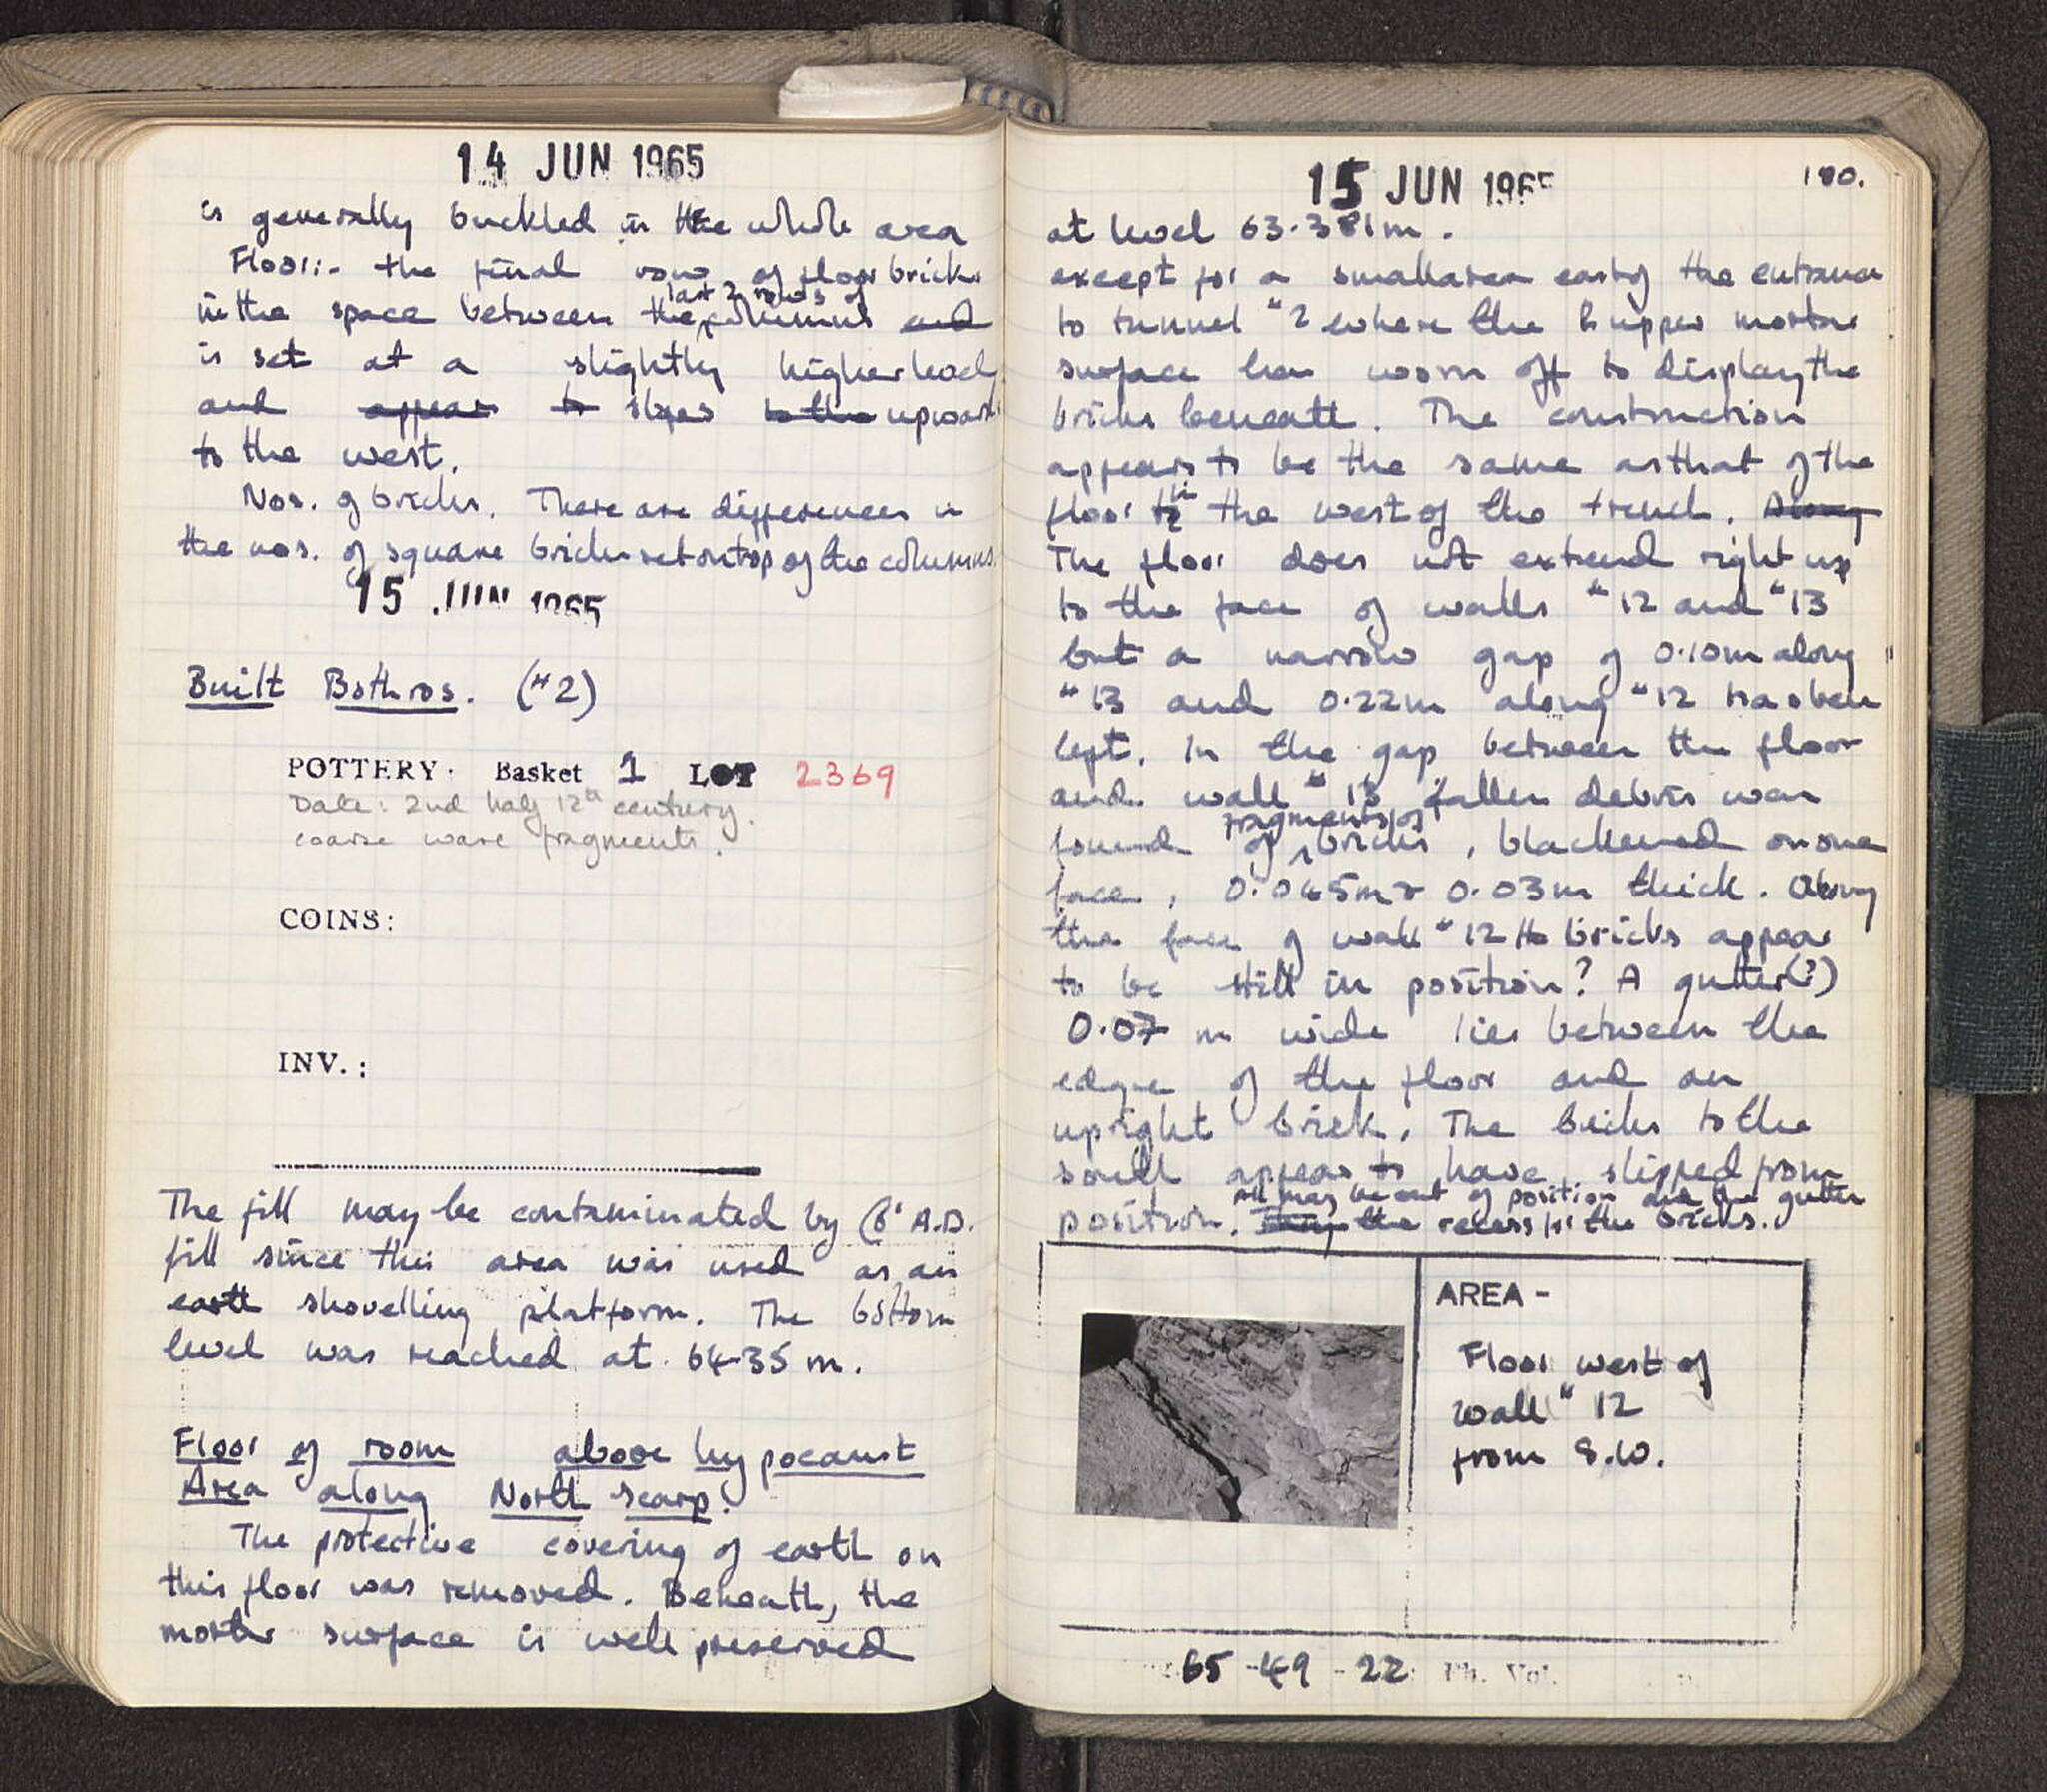 14 JUN 1965
is generally buckled in the whole area
Floor:- the final row of floor bricks
last 2 rows of
in the space between the columns and
is set at a slightly higher level
and appear to slopes to the upward
to the west.
Nos. of bricks. There are differences in
the nos. of square bricks set ontop of the columns.
15 JUN 1965
Built Bothros. (#2)
POTTERY: Basket 1 LOT 2369
Date: 2nd half 12th century.
coarse ware fragments.
COINS:
INV.:
The fill may be contaminated by A.D.
fill since this area was used as an
earth shovelling platform. The bottom
level was reached at 64.35 m.
Floor of room above hypocaust
Area along North scarp.
The protective covering of earth on
this floor was removed. Beneath, the
mortar surface is well preserved
15 JUN 1965
100.
at level 63.381m.
except for a small area east of the entrance
to tunnel #2 where the upper mortar
surface has worn off to display the
bricks beneath. The construction
appears to be the same as that of the
floor in the west of the trench. Along
The floor does not extend right up
to the face of walls #12 and #13
but a narrow gap of 0.10m along
#13 and 0.22m along #12 has been
left. In the gap between the floor
and wall #13 fallen debris was
fragments of
found of bricks, blackened on one
face, 0.045m & 0.03m thick. Along
the face of wall #12 bricks appear
to be still in position? A gutter(?)
0.07 m wide lies between the
edge of the floor and an
upright brick. The bricks to the
south appear to have slipped from
All may be out of position and the gutter
position. the recess for the bricks.
AREA -
Floor west of
wall #12
from S.W.
65-49-22 Ph. Vol.